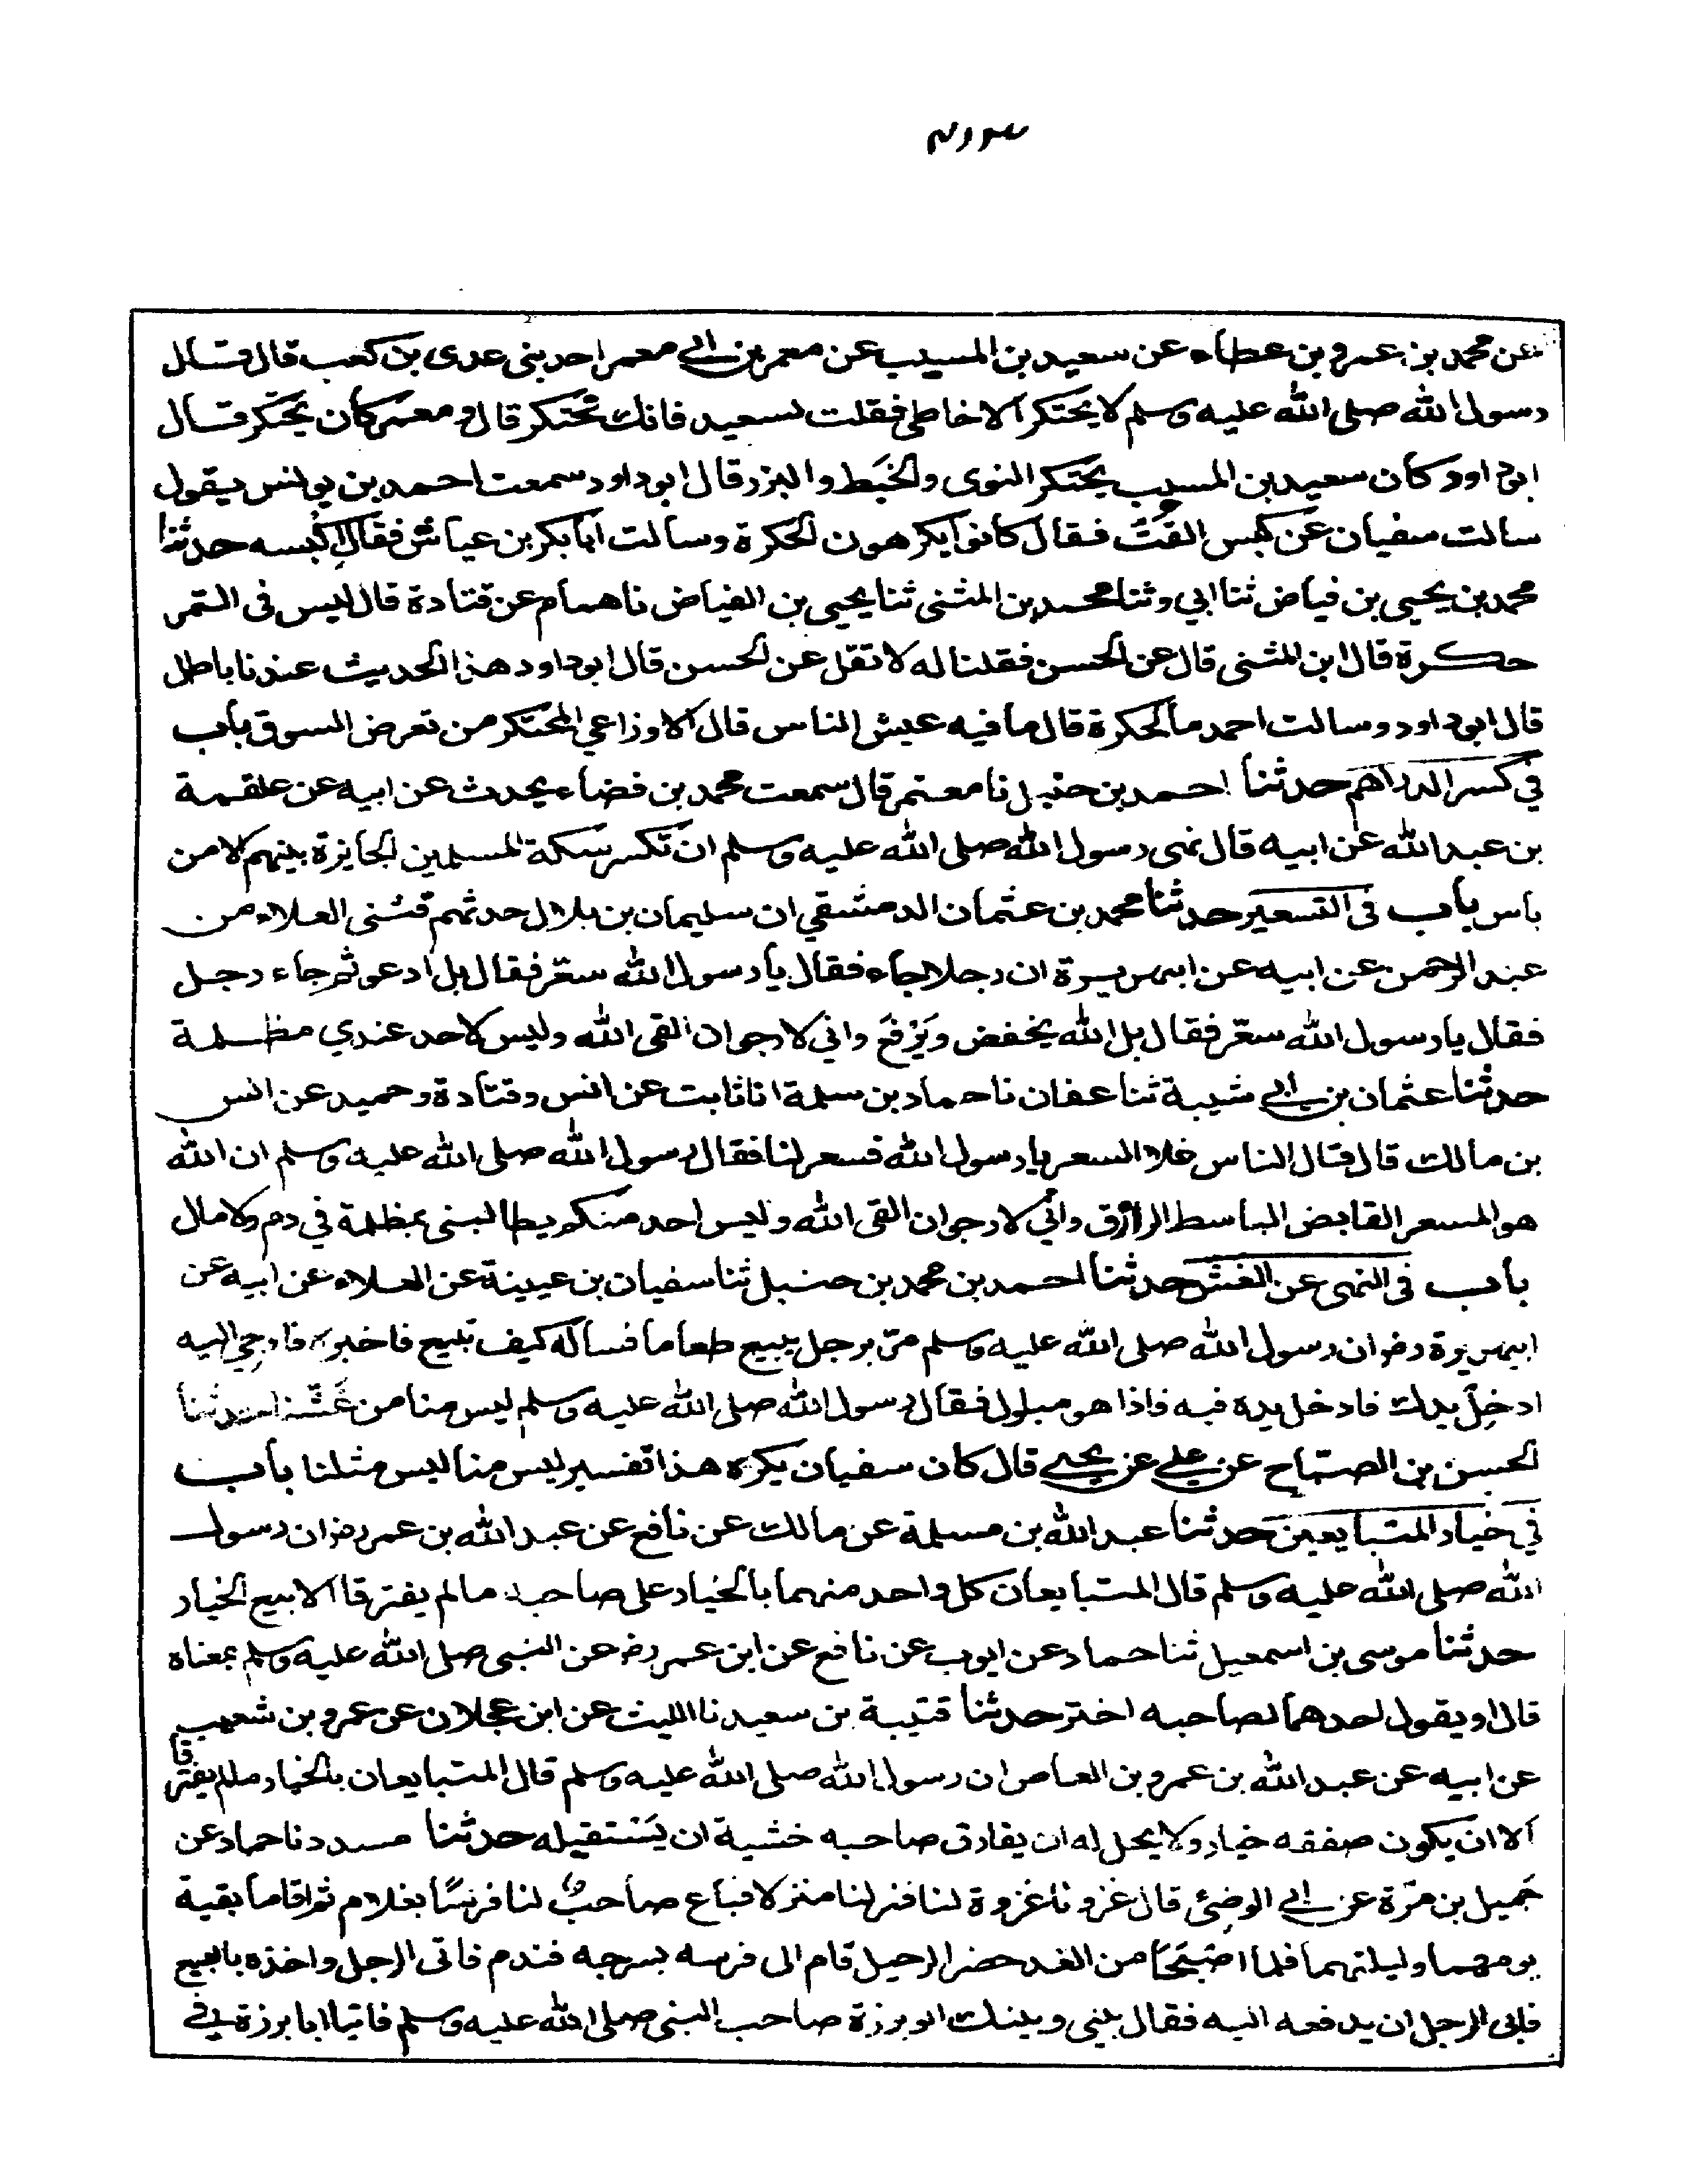 عن محمد بن عمرو بن عطاء عن سعيد بن المسيب عن معمر بن ابي معمر احد بنى عدى بن كعب قال قال
رسول الله صلى الله عليه وسلم لا يحتكر الا خاطئ فقلت لسعيد فانك تحتكر قال ومعمر كان يحتكر قال
ابوداود كان سعيد بن المسيب يحتكر النوى والخبط والبزر قال ابوداود سمعت احمد بن يونس يقول
سالت سفيان عن كبس القت فقال كانوا يكرهون الحكرة وسالت ابا بكر بن عياش فقال اكبسه حدثنا
محمد بن يحيى بن فياض ثنا ابي وثنا محمد بن المثنى ثنا يحيى بن الفياض نا همام عن قتادة قال ليس فى التمر
حكرة قال ابن المثنى قال عن الحسن فقلنا له لا تقل عن الحسن قال ابوداود هذا الحديث عندنا باطل
قال ابوداود وسالت احمد ما الحكرة قال ما فيه عيش الناس قال الاوزاعي المحتكر من تعرض السوق باب
في كسر الدراهم حدثنا احمد بن حنبل نا معتمر قال سمعت محمد بن فضاء يحدث عن ابيه عن علقمة
بن عبد الله عن ابيه قال نهى رسول الله صلى الله عليه وسلم ان تكسر سكة المسلمين الجايزة بينهم الا من
باس باب فى التسعير حدثنا محمد بن عثمان الدمشقي ان سليمان بن بلال حدثهم قثنى العلاء من
عبد الرحمن عن ابيه عن ابي هريرة ان رجلا جاء فقال يا رسول الله سعّر فقال بل ادعو ثم جاء رجل
فقال يا رسول الله سعّر فقال بل الله يخفض ويَرْفَع واني لارجو ان القى الله وليس لاحد عندي مظلمة
حدثنا عثمان بن ابي شيبة ثنا عفان نا حماد بن سلمة انا ثابت عن انس وقتادة وحميد عن انس
بن مالك قال قال الناس غلا السعر يا رسول الله فسعر لنا فقال رسول الله صلى الله عليه وسلم ان الله
هو المسعر القابض الباسط الرازق واني لارجو ان القى الله وليس احد منكم يطالبنى بمظلمة في دم ولا مال
باب فى النهى عن الغش حدثنا احمد بن محمد بن حنبل ثنا سفيان بن عيينة عن العلاء عن ابيه عن
ابي هريرة رضـ ان رسول الله صلى الله عليه وسلم مرّ برجل يبيع طعاما فساله كيف تبيع فاخبره فاوحي اليه
ادخِلْ يدك فادخل يده فيه فاذا هو مبلول فقال رسول الله صلى الله عليه وسلم ليس منا من غَشَّنا حدثنا
الحسن بن الصبّاح عن علي عن يحيى قال كان سفيان يكره هذا تفسير ليس منا ليس مثلنا باب
في خيار المتبايعين حدثنا عبد الله بن مسلمة عن مالك عن نافع عن عبد الله بن عمر رضـ ان رسول
الله صلى الله عليه وسلم قال المتبايعان كل واحد منهما بالخيار على صاحبه ما لم يفترقا الا بيع الخيار
حدثنا موسى بن اسمعيل ثنا حماد عن ايوب عن نافع عن ابن عمر رضـ عن النبى صلى الله عليه وسلم بمعناه
قال او يقول احدهما لصاحبه اختر حدثنا قتيبة بن سعيد نا الليث عن ابن عجلان عن عمرو بن شعيب
عن ابيه عن عبد الله بن عمرو بن العاص ان رسول الله صلى الله عليه وسلم قال المتبايعان بالخيار ما لم يفترقا
الا ان يكون صفقه خيار ولا يحل له ان يفارق صاحبه خشية ان يَسْتقيله حدثنا مسدد نا حماد عن
جَميل بن مرّة عن ابي الوضئ قال غزونا غزوة لنا فنزلنا منزلا فباع صاحبٌ لنا فرسًا بغلام ثم اقاما بقية
يومهما وليلتهما فلما اصْبَحَا من الغد حضر الرحيل قام الى فرسه يسرجه فندم فاتى الرجل واخذه بالبيع
فابى الرجل ان يدفعه اليه فقال بيني وبينك ابو برزة صاحب النبى صلى الله عليه وسلم فاتيا ابا برزة في